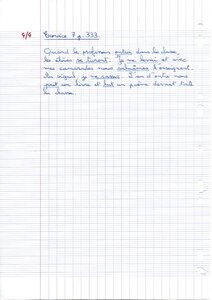 4/4 Exercice 7 p. 333
Quand le professeur entra dans la classe,
les élèves se turent. Je me levai et avec
mes camarades nous saluâmes l'enseignant.
Un signal, je me rassis. L'un d'entre nous
prit son livre et lut un poème devant toute
la classe.